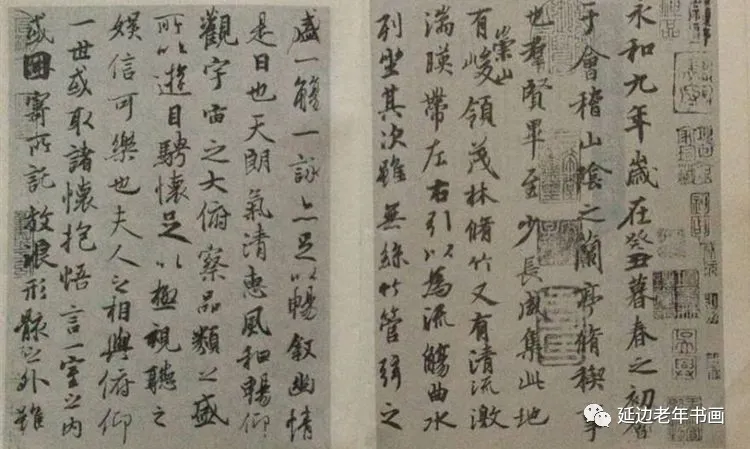 永和九年歲在癸丑暮春之初會
于會稽山陰之蘭亭脩稧事
也羣賢畢至少長咸集此地
有崇山峻領茂林脩竹又有清流激
湍暎帶左右引以為流觴曲水
列坐其次雖無絲竹管弦之
盛一觴一詠亦足以暢敘幽情
是日也天朗氣清惠風和暢仰
觀宇宙之大俯察品類之盛
所以遊目騁懷足以極視聽之
娛信可樂也夫人之相與俯仰
一世或取諸懷抱悟言一室之內
或因寄所託放浪形骸之外雖
延边老年书画